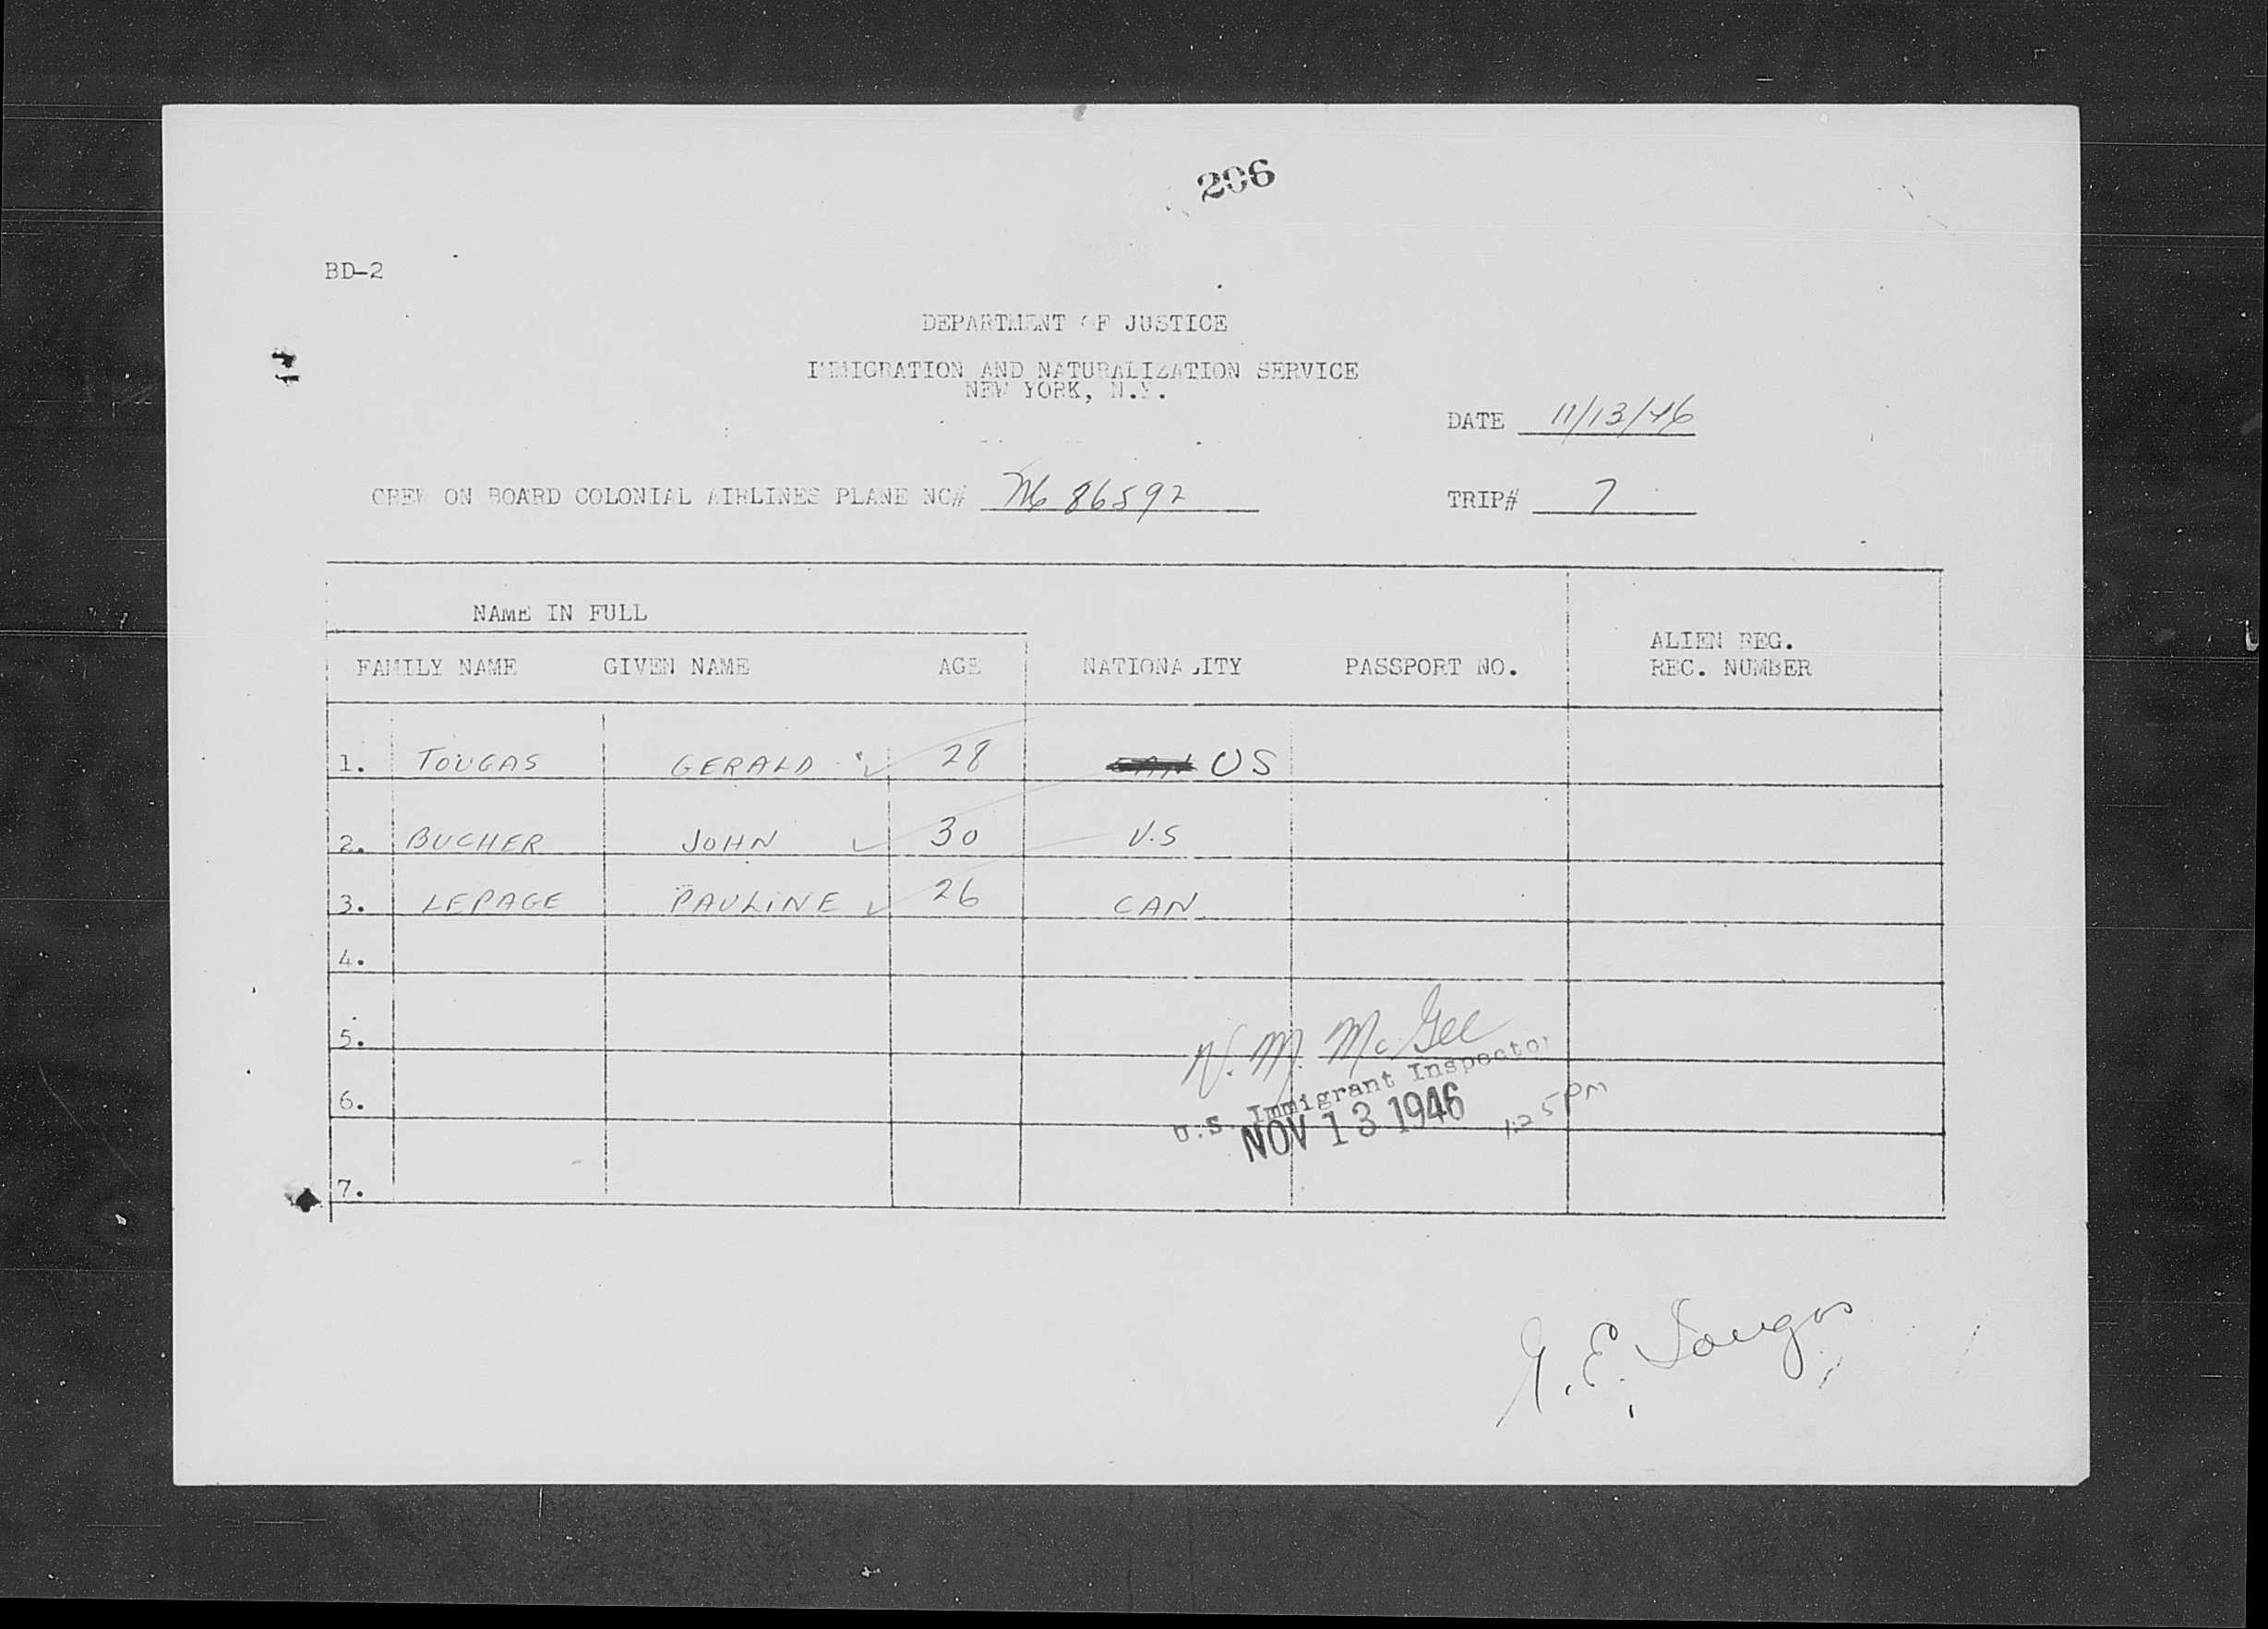 206
BD-2
DEPARTMENT OF JUSTICE
IMMIGRATION AND NATURALIZATION SERVICE
NEW YORK, N.Y.
DATE 11/13/46
CREW ON BOARD COLONIAL AIRLINES PLANE NC# NC 86592
TRIP# 7
NAME IN FULL
ALIEN REG.
FAMILY NAME GIVEN NAME AGE NATIONALITY PASSPORT NO. REC. NUMBER
1. TOUGAS GERALD 28 CAN US
2. BUCHER JOHN 30 U.S
3. LEPAGE PAULINE 26 CAN
4.
5.
N. M. McGee
6.
U.S. Immigrant Inspector
NOV 13 1946 1:25 PM
7.
G. E. Tougas